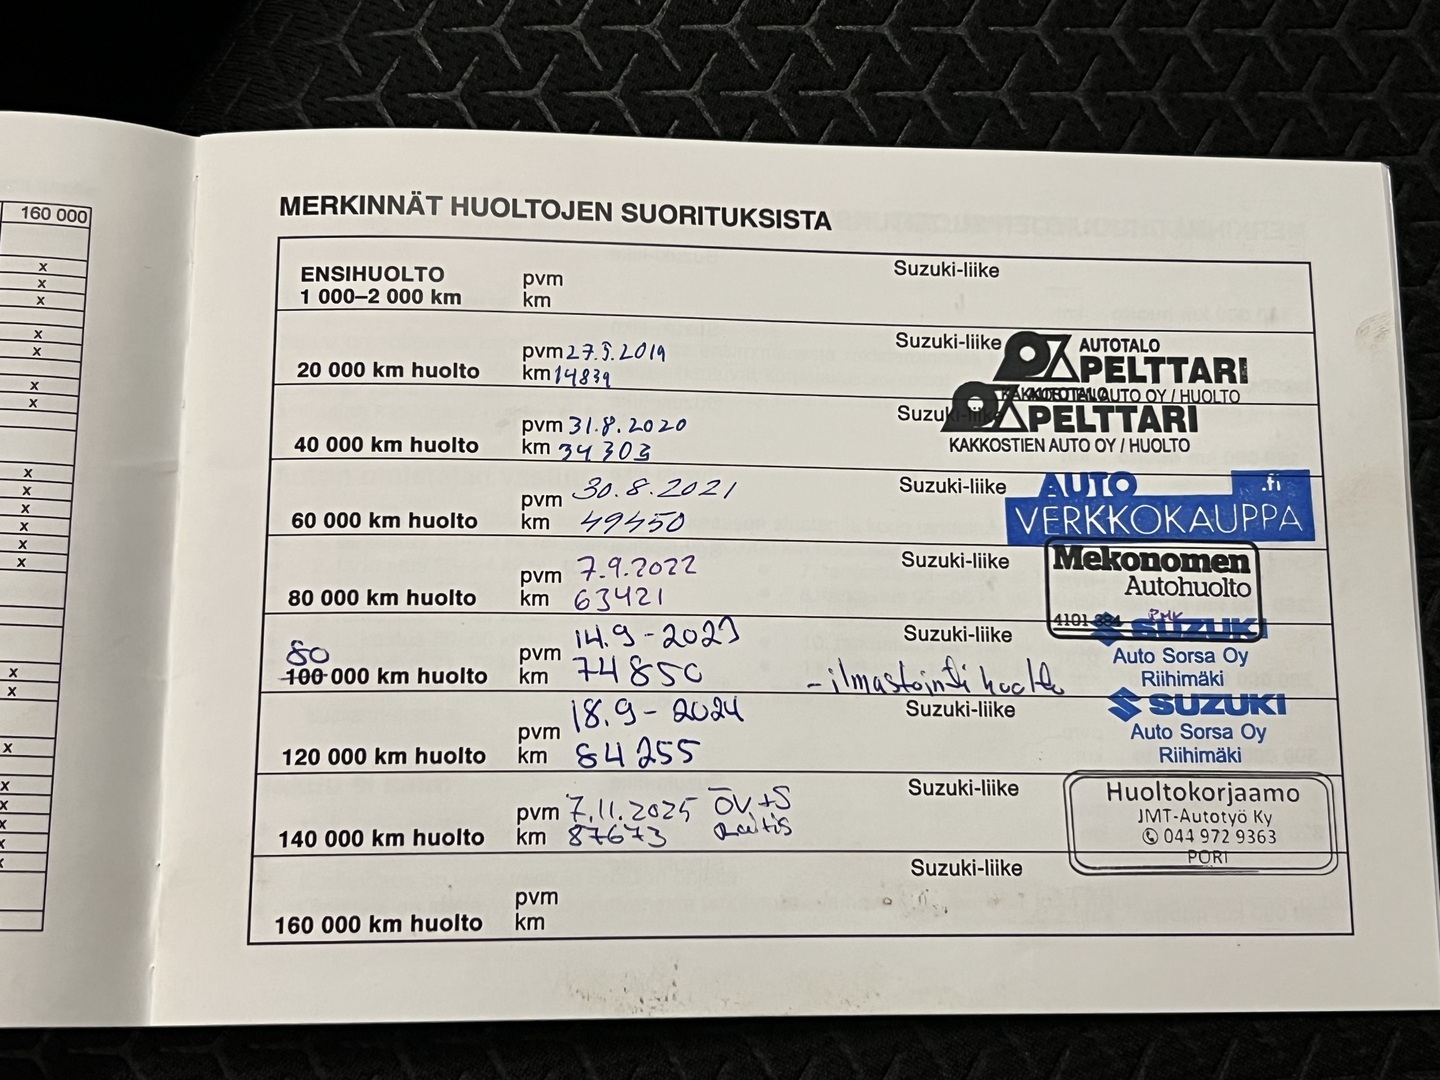 160 000
x
x
x
x
x
x
x
x
x
x
x
x
x
x
x
x
x
x
x
x
MERKINNÄT HUOLTOJEN SUORITUKSISTA
ENSIHUOLTO
1 000–2 000 km
pvm
km
Suzuki-liike
20 000 km huolto
pvm 27.5.2019
km 14839
Suzuki-liike
AUTOTALO
PELTTARI
KAKKOSTIEN AUTO OY / HUOLTO
40 000 km huolto
pvm 31.8.2020
km 34303
Suzuki-liike
AUTOTALO
PELTTARI
KAKKOSTIEN AUTO OY / HUOLTO
60 000 km huolto
pvm 30.8.2021
km 49450
Suzuki-liike
AUTO .fi
VERKKOKAUPPA
80 000 km huolto
pvm 7.9.2022
km 63421
Suzuki-liike
Mekonomen
Autohuolto
4101
80
100 000 km huolto
pvm 14.9-2023
km 74850
Suzuki-liike
- ilmastointihuolto
SUZUKI
Auto Sorsa Oy
Riihimäki
120 000 km huolto
pvm 18.9-2024
km 84255
Suzuki-liike
SUZUKI
Auto Sorsa Oy
Riihimäki
140 000 km huolto
pvm 7.11.2025 ÖV+S
km 87673 Raitis
Suzuki-liike
Huoltokorjaamo
JMT-Autotyö Ky
044 972 9363
PORI
160 000 km huolto
pvm
km
Suzuki-liike